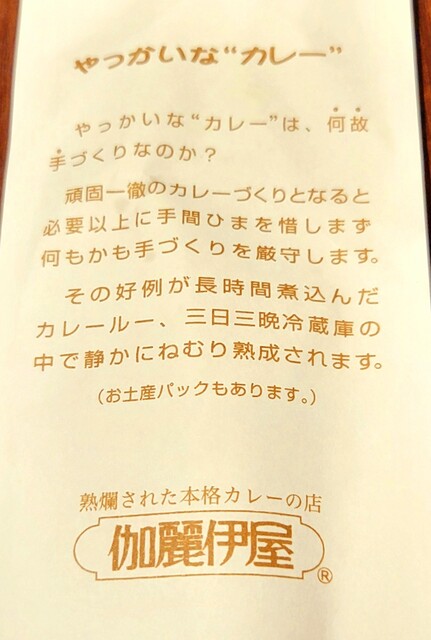 やっかいな“カレー”
やっかいな“カレー”は、何故
手づくりなのか？
頑固一徹のカレーづくりとなると
必要以上に手間ひまを惜しまず
何もかも手づくりを厳守します。
その好例が長時間煮込んだ
カレールー、三日三晩冷蔵庫の
中で静かにねむり熟成されます。
(お土産パックもあります。)
熟爛された本格カレーの店
伽麗伊屋®